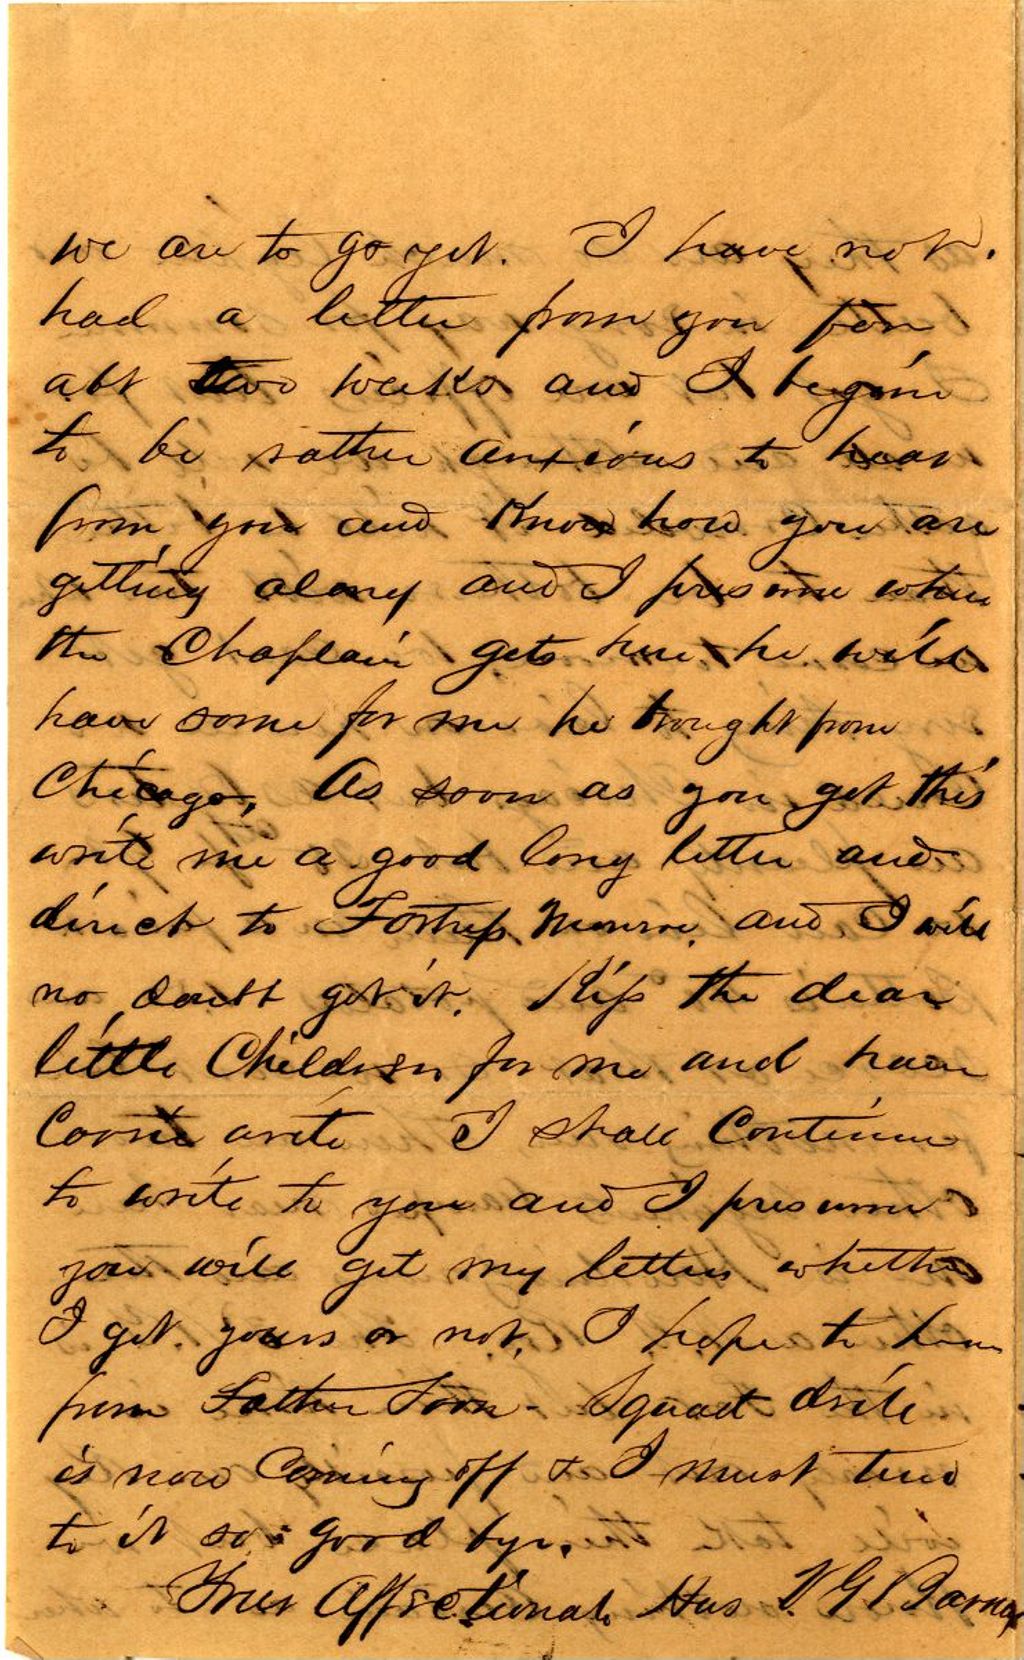 we are to go yet. I have not
had a letter from you for
abt two weeks and I begin
to be rather anxious to hear
from you and know how you are
getting along and I presume when
the Chaplain gets here he will
have some for me he brought from
Chicago, As soon as you get this
write me a good long letter and
direct to Fortress Monroe, and I will
no doubt get it. Kiss the dear
little Children for me and have
Corrie write I shall Continue
to write to you and I presume
you will get my letters whether
I get yours or not, I hope to hear
from Father Soon - Squad drill
is now Coming off & I must tend
to it so good bye.
Your Affectionate Hus V. G. Barney